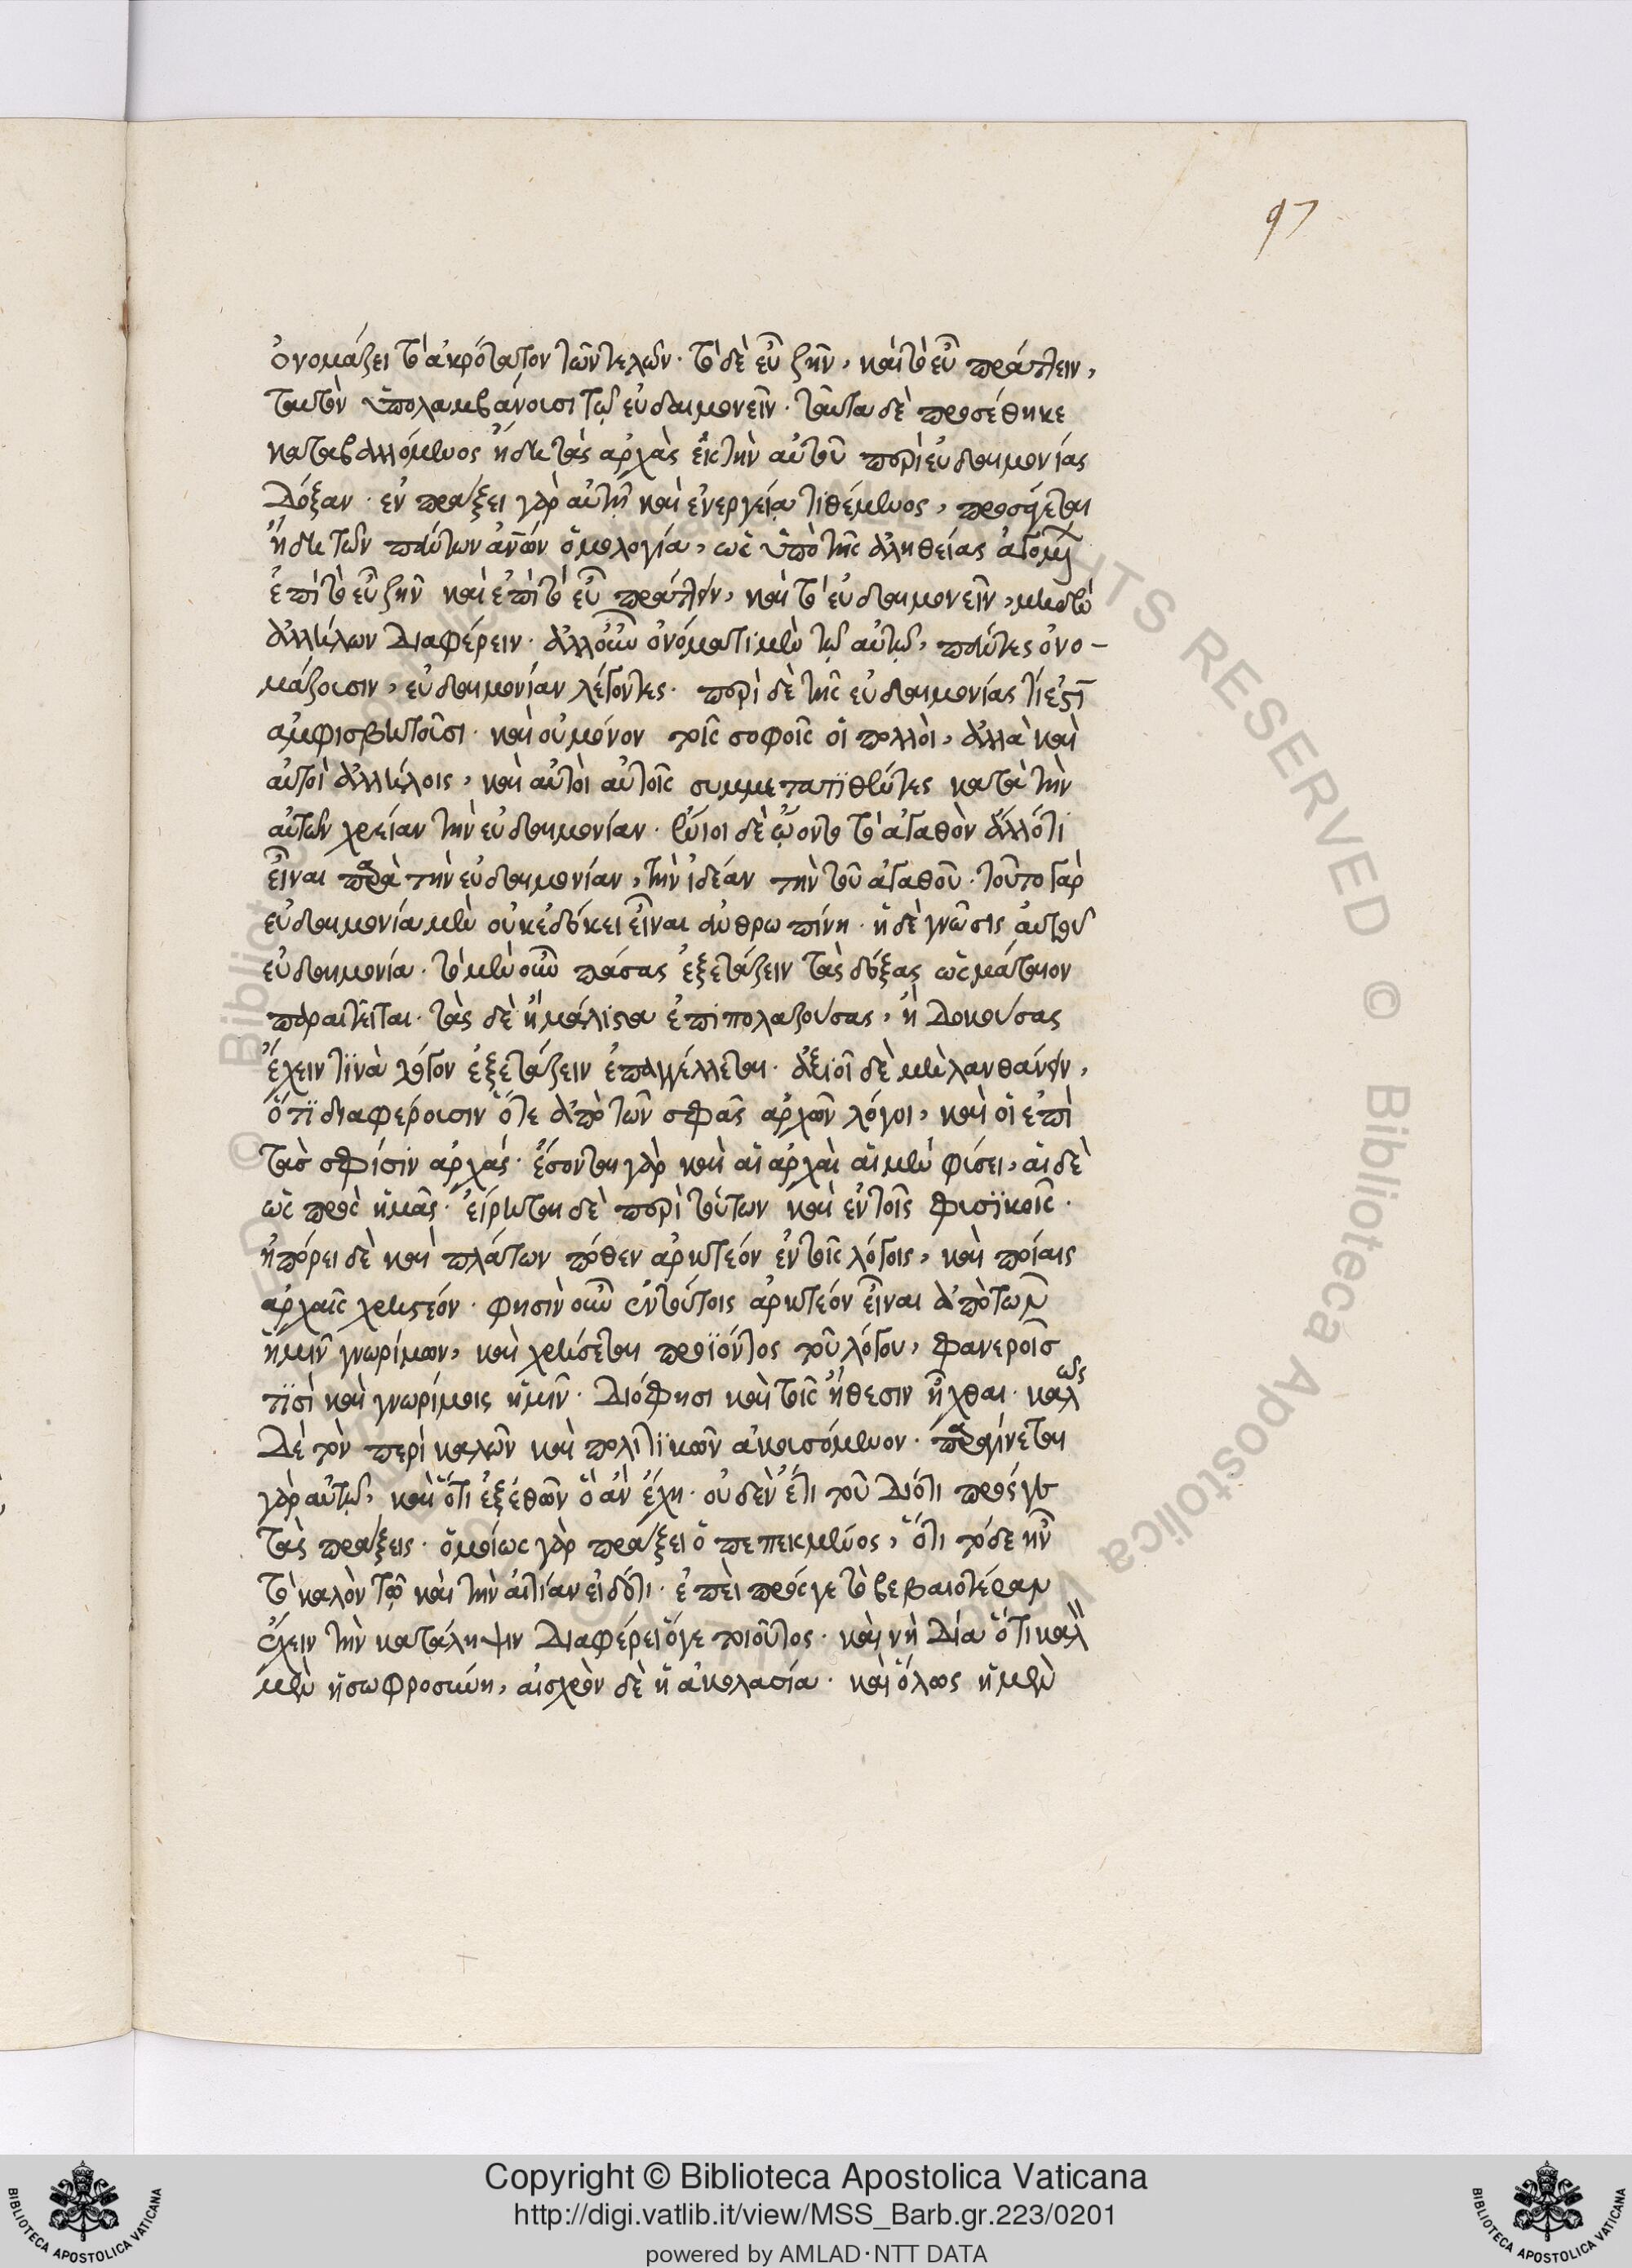 97
ὀνομάζει τὸ ἀκρότατον τῶν τελῶν· τὸ δὲ εὖ ζῆν, καὶ τὸ εὖ πράττειν,
ταυτὸν ὑπολαμβάνουσι τῷ εὐδαιμονεῖν· ταῦτα δὲ προσέθηκε
καταβαλλόμενος ἤδη τὰς ἀρχὰς εἰς τὴν αὐτοῦ περὶ εὐδαιμονίας
δόξαν· ἐν πράξει γὰρ αὐτὴν καὶ ἐνεργείᾳ τιθέμενος, προσάγεται
ἤδη τῶν πάντων ἀνῶν ὁμολογία, ὡς ὑπὸ τῆς ἀληθείας
ἐπὶ τὸ εὖ ζῆν καὶ ἐπὶ τὸ εὖ πράττειν, καὶ τὸ εὐδαιμονεῖν, μηδὲν
ἀλλήλων διαφέρειν· ἀλλ' οὖν ὀνόματι μὲν τῷ αὐτῷ, πάντες ὀνο-
μάζουσιν, εὐδαιμονίαν λέγοντες· περὶ δὲ τῆς εὐδαιμονίας τί ἐστὶ
ἀμφισβητοῦσι· καὶ οὐ μόνον τοῖς σοφοῖς οἱ πολλοὶ, ἀλλὰ καὶ
αὐτοὶ ἀλλήλοις, καὶ αὐτοὶ αὐτοῖς συμμετατιθέντες κατὰ τὴν
αὐτῶν χρείαν τὴν εὐδαιμονίαν· ἔνιοι δὲ ᾤοντο τὸ ἀγαθὸν ἄλλό τι
εἶναι παρὰ τὴν εὐδαιμονίαν, τὴν ἰδέαν τὴν τοῦ ἀγαθοῦ· τοῦτο γὰρ
εὐδαιμονία μὲν οὐκ ἐδόκει εἶναι ἀνθρωπίνη· ἡ δὲ γνῶσις αὐτοῦ
εὐδαιμονία· τὸ μὲν οὖν πάσας ἐξετάζειν τὰς δόξας ὡς μάταιον
παραιτεῖται· τὰς δὲ ἢ μάλιστα ἐπιπολαζούσας, ἢ δοκούσας
ἔχειν τινὰ λόγον ἐξετάζειν ἐπαγγέλλεται· ἀξιοῖ δὲ μὴ λανθάνειν,
ὅτι διαφέρουσιν οἵ τε ἀπὸ τῶν σφᾶς ἀρχῶν λόγοι, καὶ οἱ ἐπὶ
τὰς σφίσιν ἀρχάς· ἔσονται γὰρ καὶ αἱ ἀρχαὶ αἱ μὲν φύσει, αἱ δὲ
ὡς πρὸς ἡμᾶς· εἴρηται δὲ περὶ τούτων καὶ ἐν τοῖς φυσικοῖς·
ἠπόρει δὲ καὶ πλάτων πόθεν ἀρκτεόν ἐν τοῖς λόγοις, καὶ ποίαις
ἀρχαῖς χρηστέον· φησὶν οὖν ἐν τούτοις ἀρκτέον εἶναι ἀπὸ τῶν
ἡμῖν γνωρίμων, καὶ χρήσεται προϊόντος τοῦ λόγου, φανεροῖς
τισὶ καὶ γνωρίμοις ἡμῖν· διό φησι καὶ τοῖς ἤθεσιν ἦχθαι· καλῶς
δὲ τὸν περὶ καλῶν καὶ πολιτικῶν ἀκουσόμενον· παραγίνεται
γὰρ αὐτῷ, καὶ ὅτι ἐξ ἐθῶν ὃ ἂν ἔχη· οὐδὲν ἔτι τοῦ διότι πρός γε
τὰς πράξεις· ὁμοίως γὰρ πράξει ὁ πεπεισμένος, ὅτι τόδε ἦν
τὸ καλὸν τῷ καὶ τὴν αἰτίαν εἰδότι· ἐπεὶ πρός γε τὸ βεβαιοτέραν
ἔχειν τὴν κατάληψιν διαφέρει ὅγε τοιοῦτος· καὶ νὴ δία ὅτι καλὸν
μὲν ἡ σωφροσύνη, αἰσχρὸν δὲ ἡ ἀκολασία· καὶ ὅλως ἡ μὲν
Copyright © Biblioteca Apostolica Vaticana
http://digi.vatlib.it/view/MSS_Barb.gr.223/0201
powered by AMLAD·NTT DATA